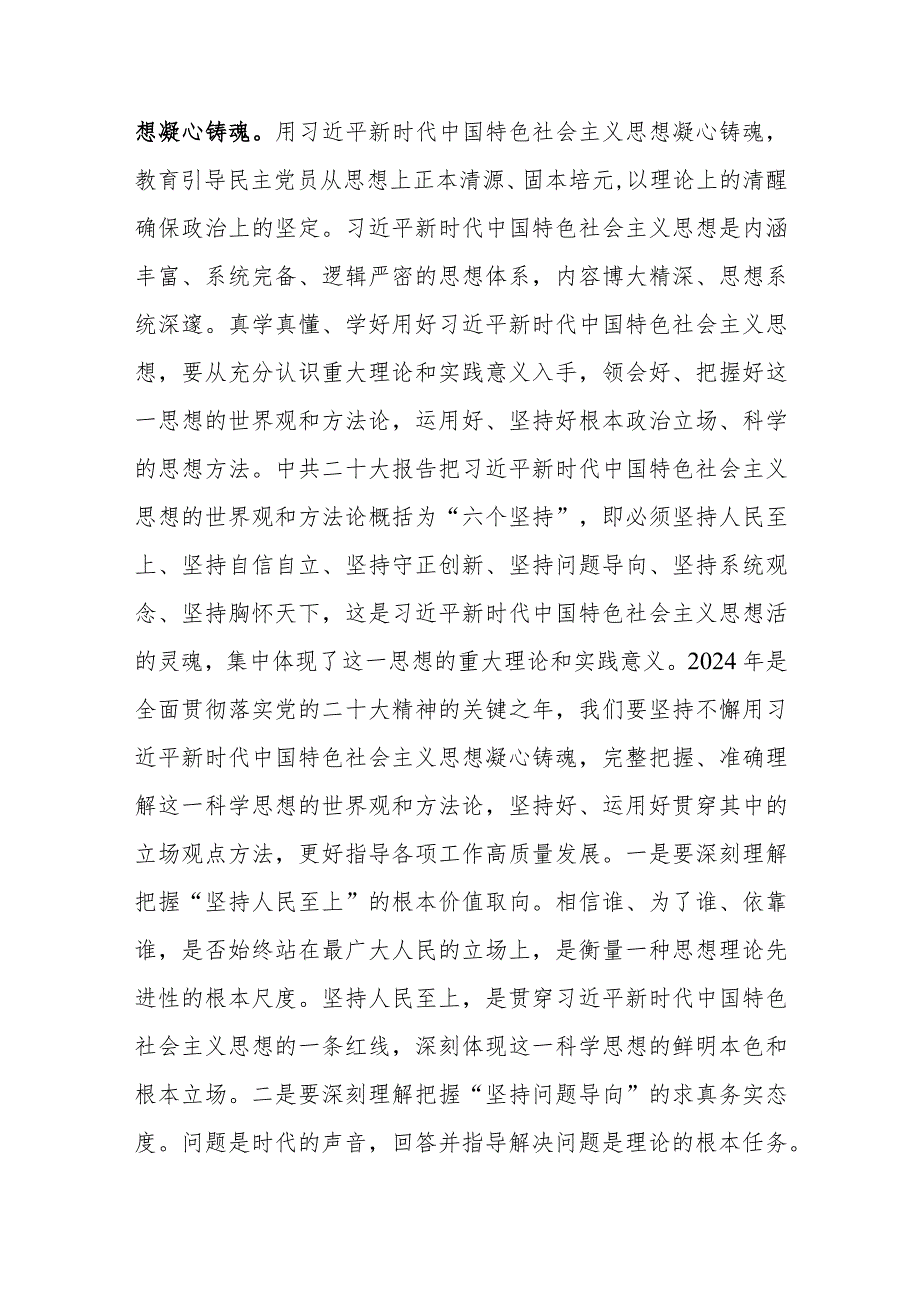 想凝心铸魂。用习近平新时代中国特色社会主义思想凝心铸魂，
教育引导民主党员从思想上正本清源、固本培元,以理论上的清醒
确保政治上的坚定。习近平新时代中国特色社会主义思想是内涵
丰富、系统完备、逻辑严密的思想体系，内容博大精深、思想系
统深邃。真学真懂、学好用好习近平新时代中国特色社会主义思
想，要从充分认识重大理论和实践意义入手，领会好、把握好这
一思想的世界观和方法论，运用好、坚持好根本政治立场、科学
的思想方法。中共二十大报告把习近平新时代中国特色社会主义
思想的世界观和方法论概括为“六个坚持”，即必须坚持人民至
上、坚持自信自立、坚持守正创新、坚持问题导向、坚持系统观
念、坚持胸怀天下，这是习近平新时代中国特色社会主义思想活
的灵魂，集中体现了这一思想的重大理论和实践意义。2024 年是
全面贯彻落实党的二十大精神的关键之年，我们要坚持不懈用习
近平新时代中国特色社会主义思想凝心铸魂，完整把握、准确理
解这一科学思想的世界观和方法论，坚持好、运用好贯穿其中的
立场观点方法，更好指导各项工作高质量发展。一是要深刻理解
把握“坚持人民至上”的根本价值取向。相信谁、为了谁、依靠
谁，是否始终站在最广大人民的立场上，是衡量一种思想理论先
进性的根本尺度。坚持人民至上，是贯穿习近平新时代中国特色
社会主义思想的一条红线，深刻体现这一科学思想的鲜明本色和
根本立场。二是要深刻理解把握“坚持问题导向”的求真务实态
度。问题是时代的声音，回答并指导解决问题是理论的根本任务。